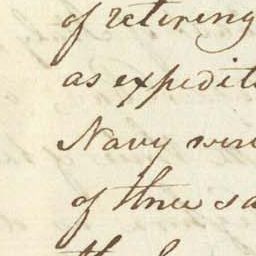 of retiring
as expedit
Navy were
of three sa
the